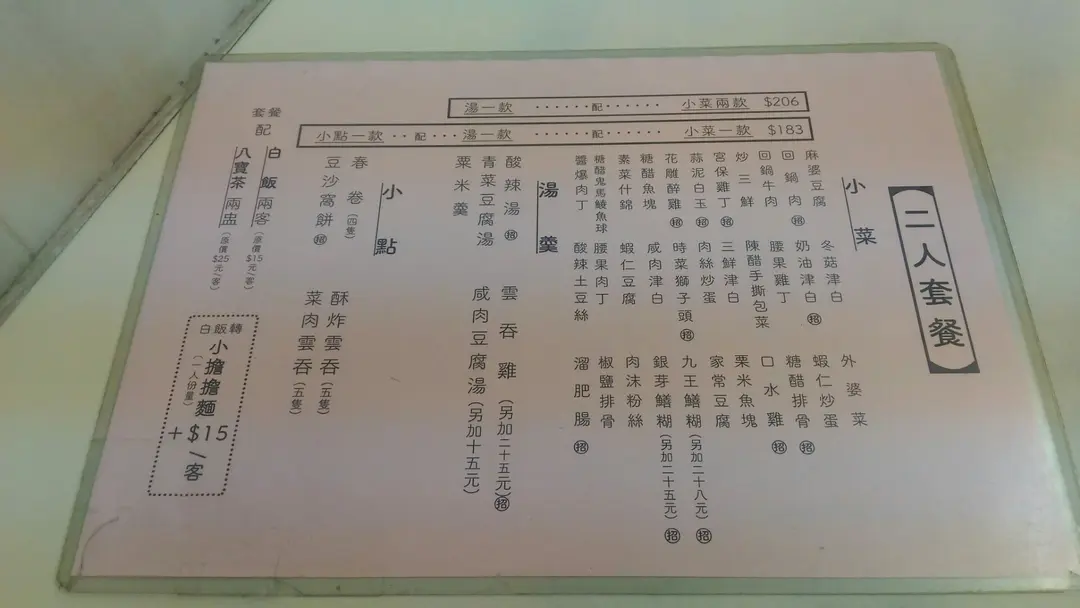 湯一款 ······配······ 小菜兩款 $206
小點一款 ··配··· 湯一款 ······配······ 小菜一款 $183
【二人套餐】
小菜
麻婆豆腐
回鍋肉 招
回鍋牛肉
炒三鮮
宮保雞丁 招
蒜泥白玉 招
花雕醉雞 招
糖醋魚塊
素菜什錦
糖醋鬼馬鯪魚球
醬爆肉丁
冬菇津白
奶油津白 招
腰果雞丁
陳醋手撕包菜
三鮮津白
肉絲炒蛋
時菜獅子頭 招
咸肉津白
蝦仁豆腐
腰果肉丁
酸辣土豆絲
外婆菜
蝦仁炒蛋
糖醋排骨 招
口水雞 招
栗米魚塊
家常豆腐
九王鱔糊(另加二十八元) 招
銀芽鱔糊(另加二十五元) 招
肉沫粉絲
椒鹽排骨
溜肥腸 招
湯羹
酸辣湯 招
青菜豆腐湯
粟米羹
雲吞雞(另加二十五元) 招
咸肉豆腐湯(另加十五元)
小點
春卷(四隻)
豆沙窩餅 招
酥炸雲吞(五隻)
菜肉雲吞(五隻)
套餐
配
白飯兩客(原價$15元/客)
八寶茶兩盅(原價$25元/客)
白飯轉
小擔擔麵
(一人份量)
+$15/客